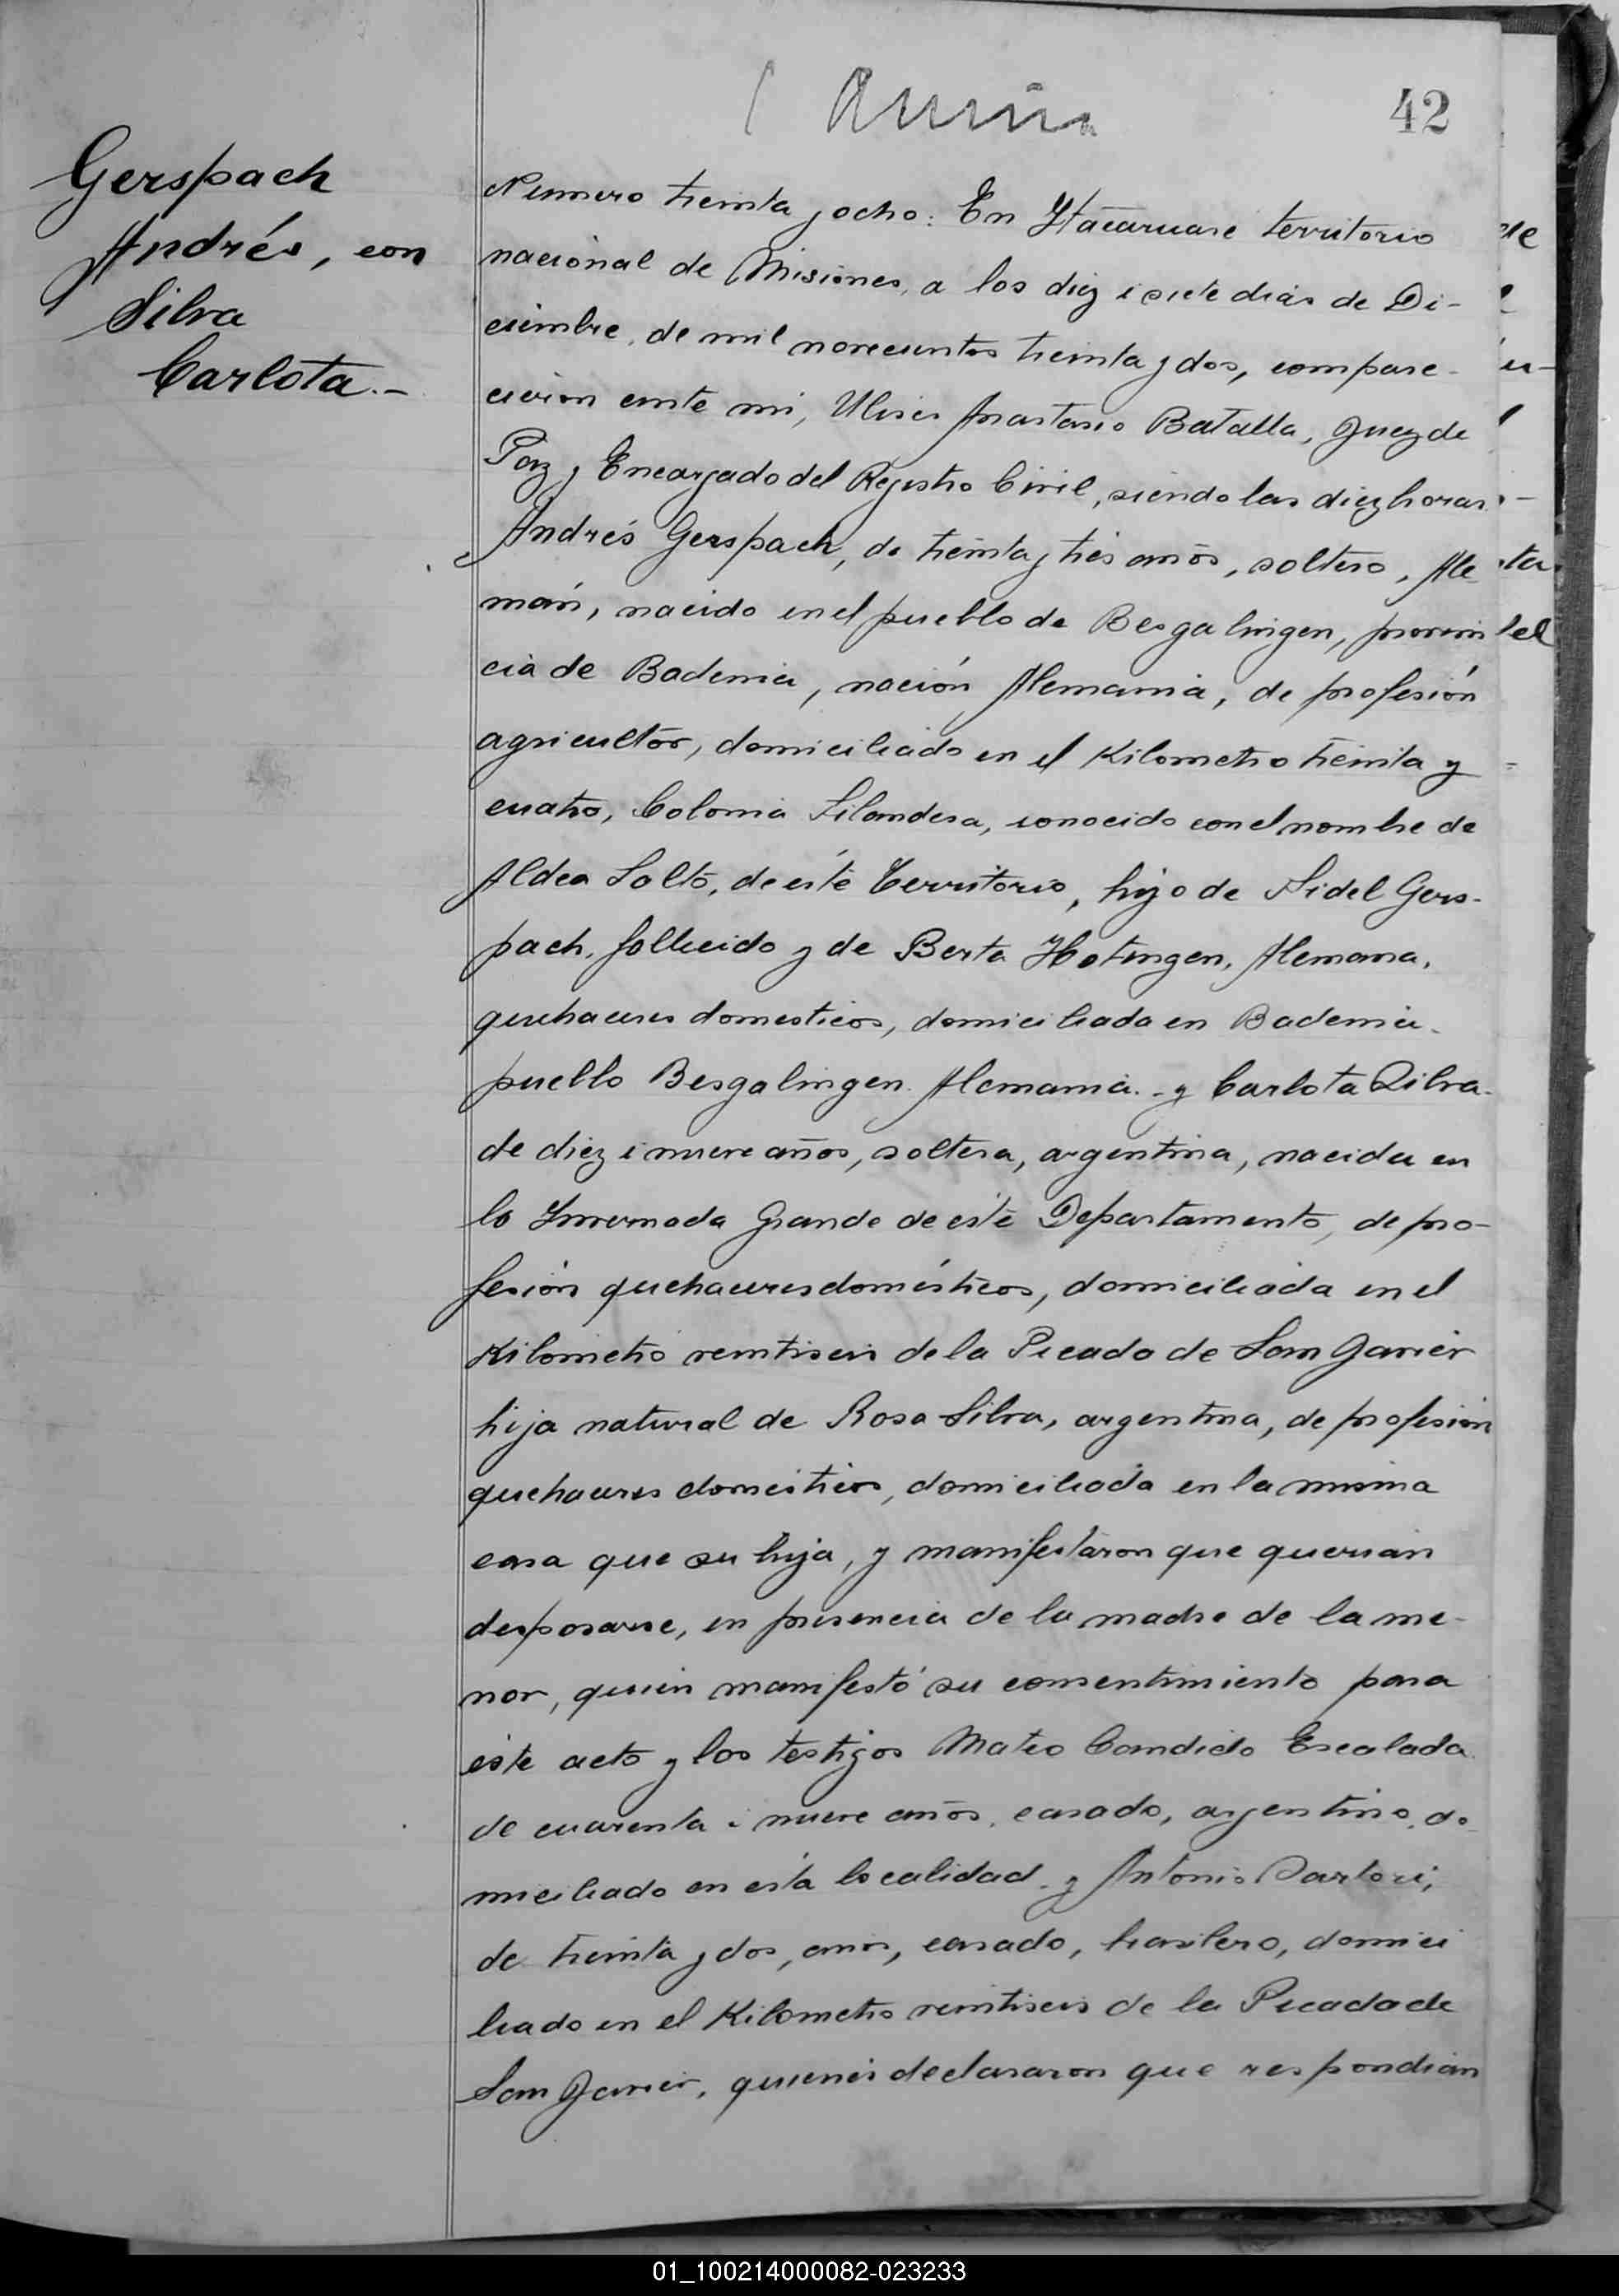 42
Gerspach
Andrés, con
Silva
Carlota.-
Número treinta y ocho: En Itacaruaré territorio
nacional de Misiones, a los diez i siete dias de Di-
ciembre, de mil novecientos treinta y dos, compare-
cieron ante mi, Ulises Anastasio Batalla, Juez de
Paz y Encargado del Registro Civil, siendo las diez horas
Andrés Gerspach, de treinta y tres años, soltero, Ale
mán, nacido en el pueblo de Besgalingen, provin
cia de Badenia, nación Alemania, de profesión
agricultor, domiciliado en el Kilometro treinta y
cuatro, Colonia Filandesa, conocido con el nombre de
Aldea Salto, de éste Territorio, hijo de Fidel Gers-
pach, fallecido y de Berta Hotingen, Alemana,
quehaceres domesticos, domiciliada en Badenia.
pueblo Besgalingen. Alemania.- y Carlota Silva.
de diez i nueve años, soltera, argentina, nacida en
la Invernada Grande de éste Departamento, de pro-
fesión quehaceres domésticos, domiciliada en el
Kilometro veintiseis de la Picada de San Javier
hija natural de Rosa Silva, argentina, de profesión
quehaceres domésticos, domiciliada en la misma
casa que su hija, y manifestaron que querian
desposarse, en presencia de la madre de la me-
nor, quien manifestó su consentimiento para
éste acto y los testigos Mateo Candido Escalada
de cuarenta i nueve años, casado, argentino, do
miciliado en ésta localidad y Antonio Sartori,
de treinta y dos, años, casado, brasilero, domici
liado en el Kilometro veintiseis de la Picada de
San Javier, quienes declararon que respondian
01_100214000082-023233